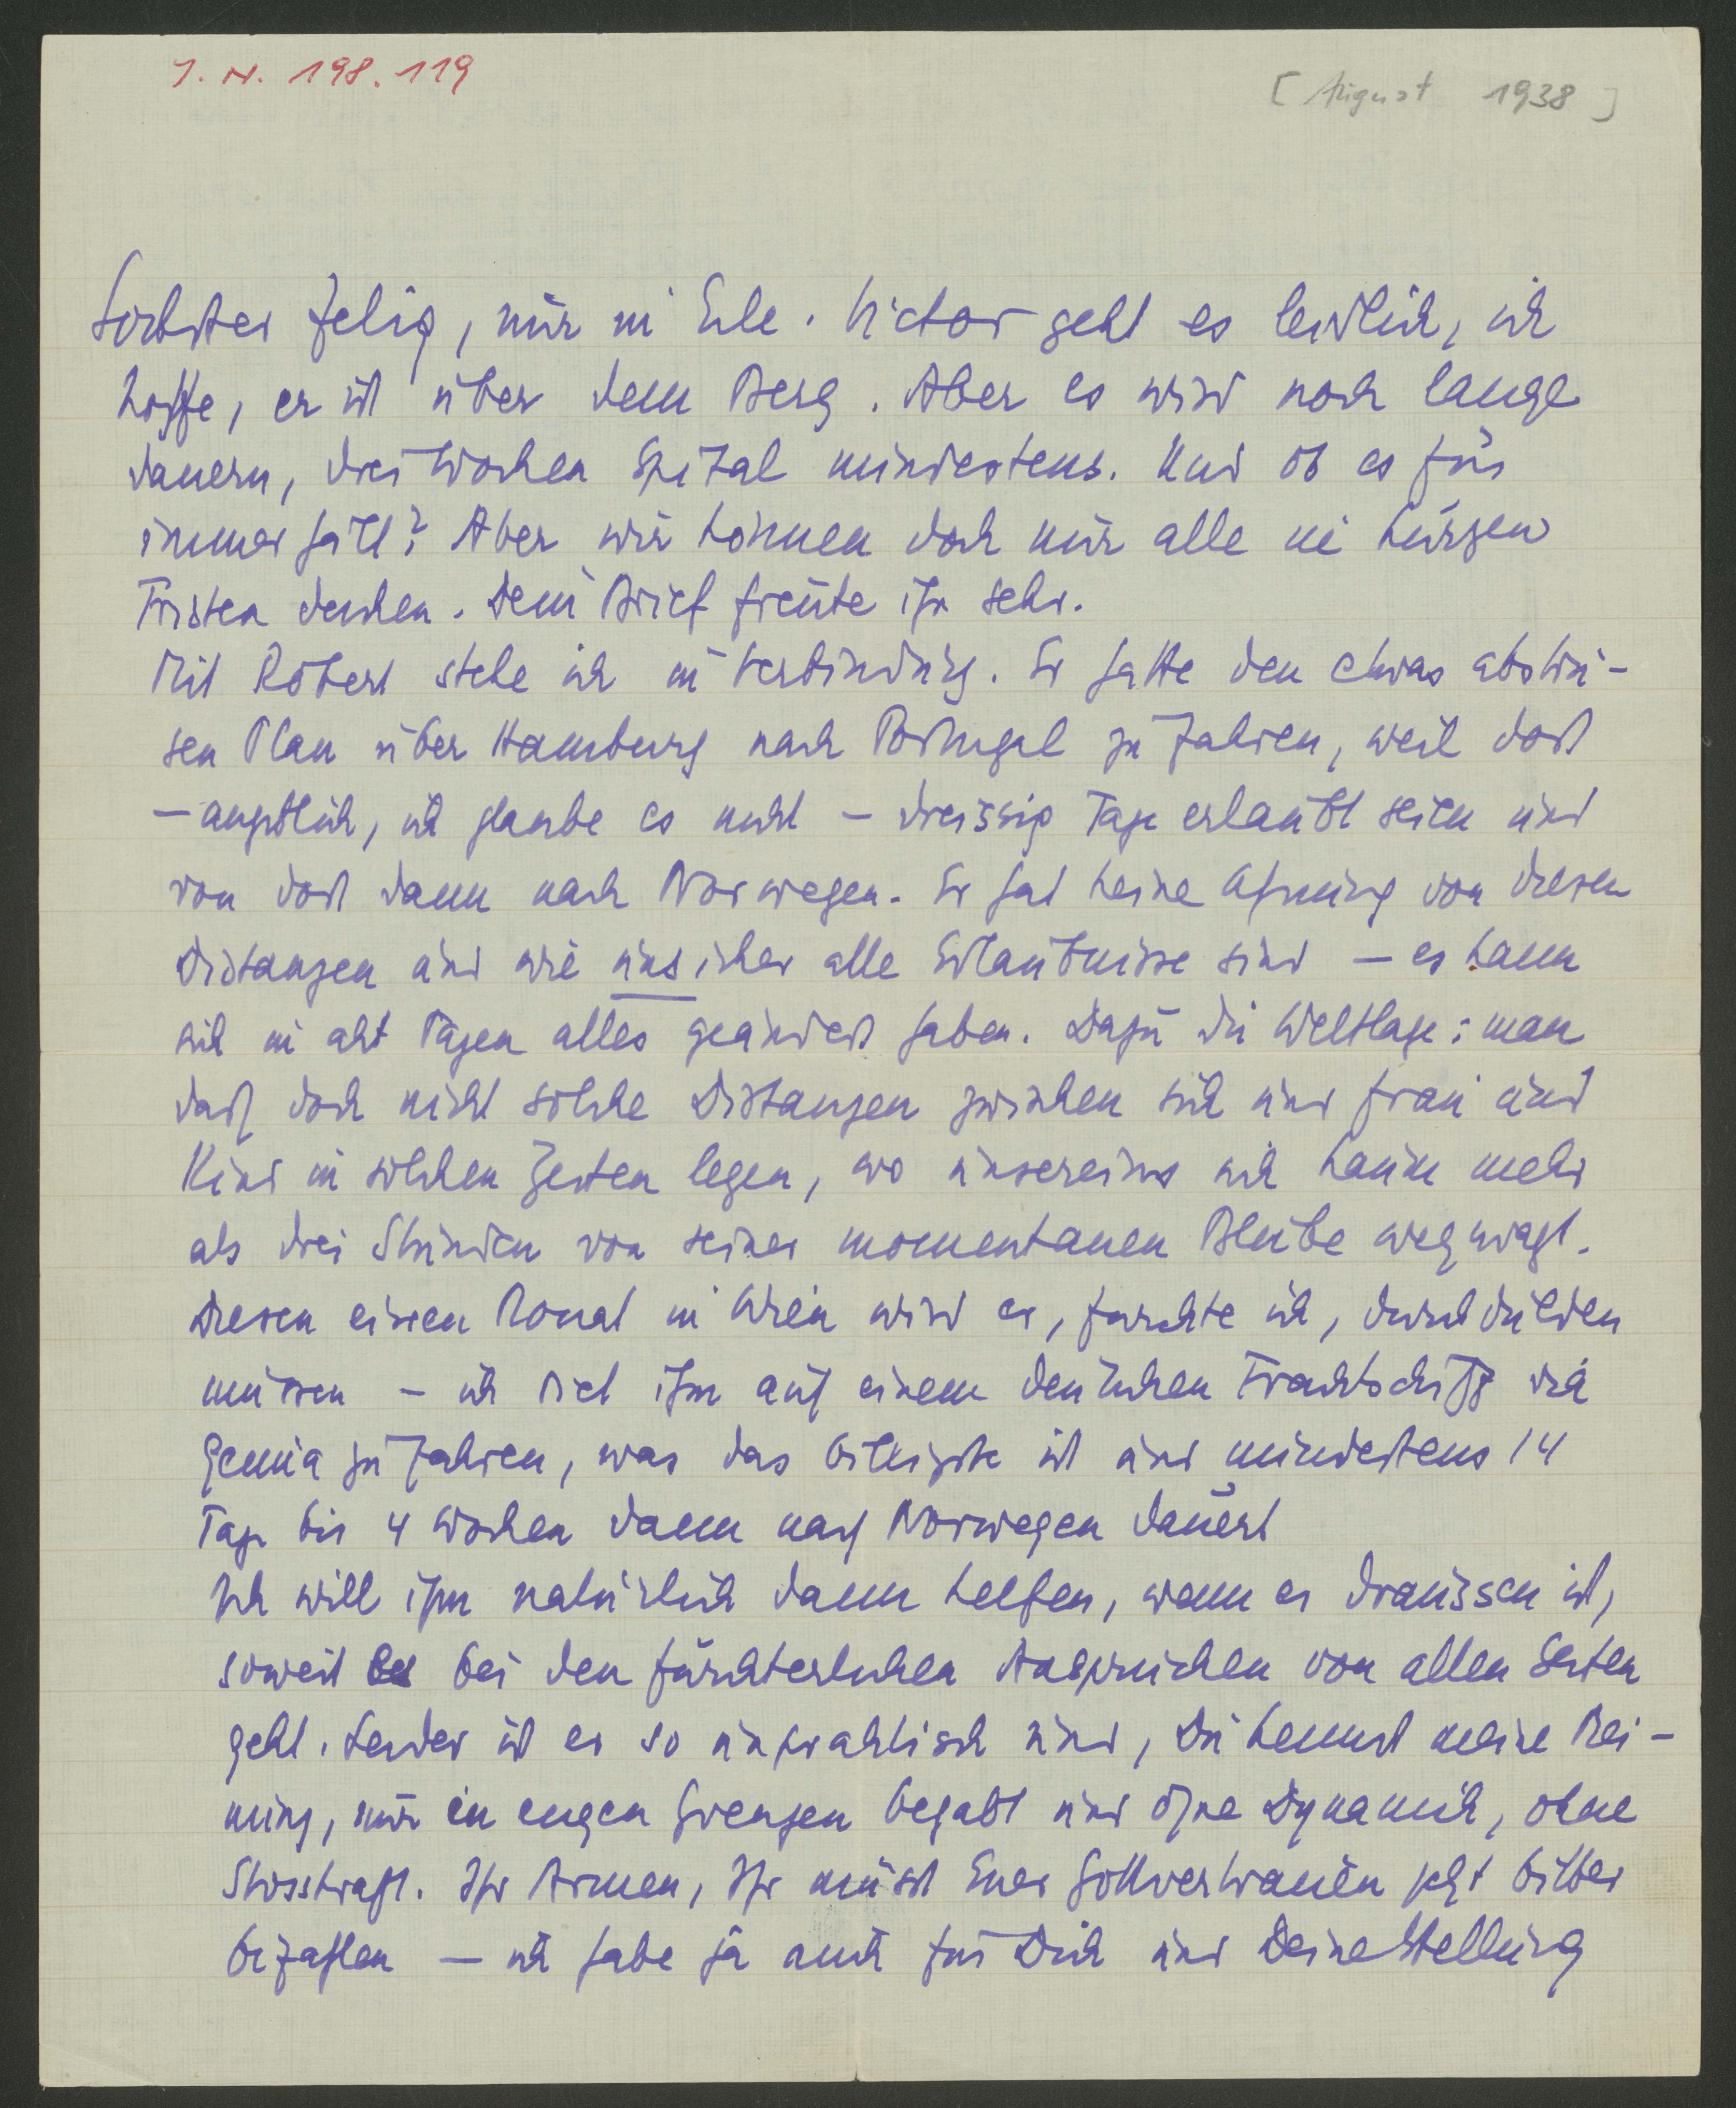 I. N. 198.119
[August 1938]
Liebster Felix, nur in Eile. Victor geht es leidlich, ich
hoffe, er ist über dem Berg. Aber es wird noch lange
dauern, drei Wochen Spital mindestens. Und ob es für
immer hält? Aber wir können doch nur alle in kurzen
Fristen denken. Dein Brief freute ihn sehr.
Mit Robert stehe ich in Verbindung. Er hatte den etwas abstru-
sen Plan über Hamburg nach Portugal zu fahren, weil dort
– angeblich, ich glaube es nicht – dreissig Tage erlaubt seien und
von dort dann nach Norwegen. Er hat keine Ahnung von diesen
Distanzen und wie unsicher alle Erlaubnisse sind – es kann
sich in acht Tagen alles geändert haben. Dazu die Weltlage: man
darf doch nicht solche Distanzen zwischen sich und Frau und
Kind in solchen Zeiten legen, wo unsereins sich kaum mehr
als drei Stunden von seiner momentanen Bleibe wegwagt.
Diesen einen Monat in Wien wird er, fürchte ich, durchdulden
müssen – ich riet ihm auf einem deutschen Frachtschiff via
Genua zu fahren, was das billigste ist und mindestens 14
Tage bis 4 Wochen dann nach Norwegen dauert
Ich will ihm natürlich dann helfen, wenn er draussen ist,
soweit es bei den fürchterlichen Ansprüchen von allen Seiten
geht. Leider ist er so unpraktisch und, Du kennst meine Mei-
nung, nur in engen Grenzen begabt und ohne Dynamik, ohne
Stosskraft. Ihr Armen, Ihr müsst Euer Gottvertrauen jetzt bitter
bezahlen – ich habe ja auch für Dich und Deine Stellung